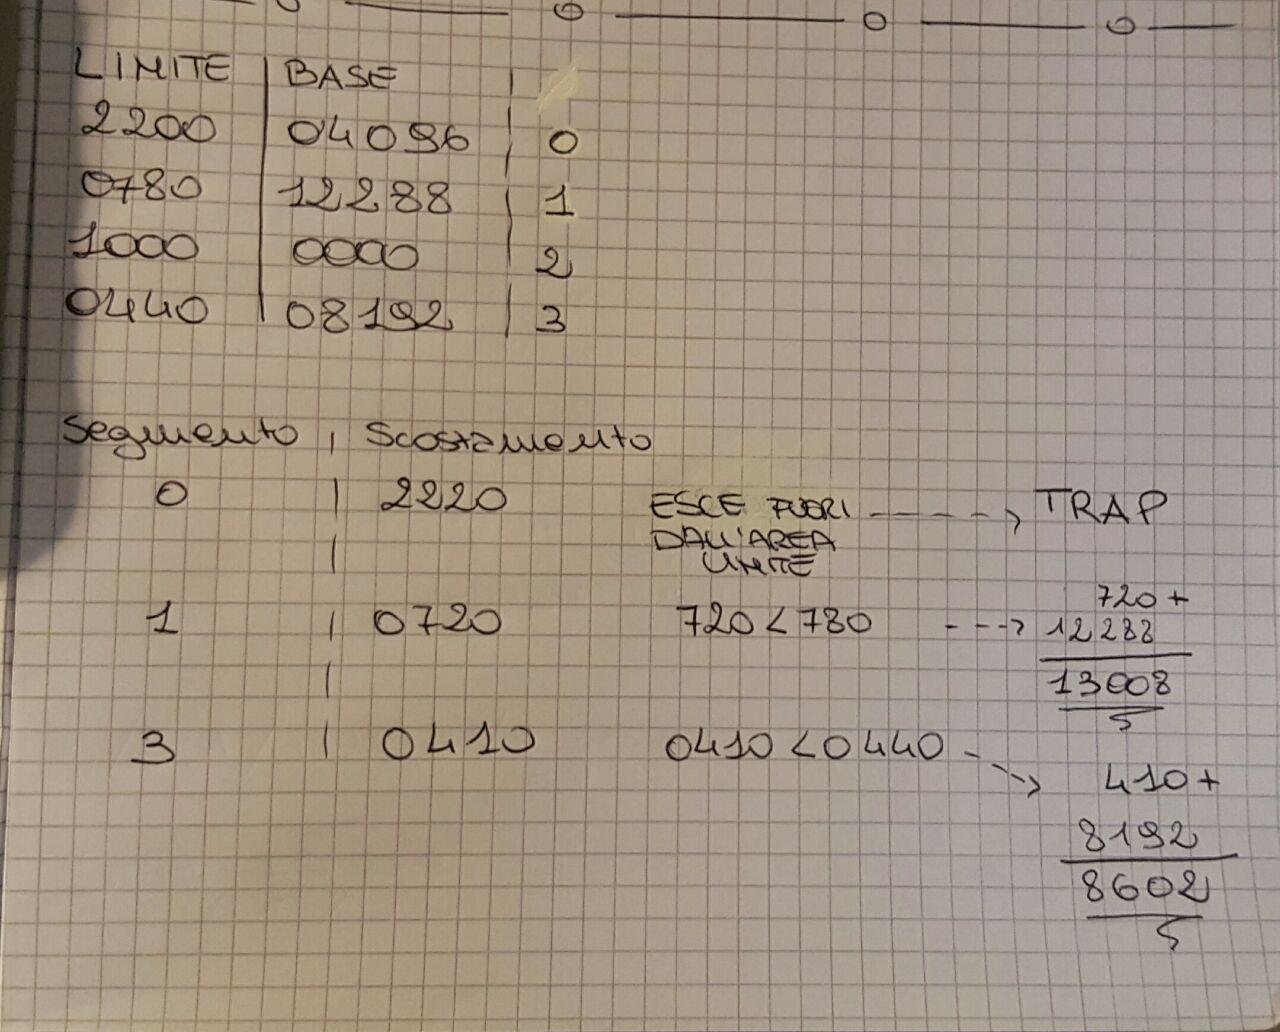 LIMITE | BASE |
2200 | 04096 | 0
0780 | 12288 | 1
1000 | 0000 | 2
0440 | 08192 | 3
Segmento | Scostamento
0 | 2220 ESCE FUORI -----> TRAP
| DALL'AREA
LIMITE
720+
1 | 0720 720<780 ---> 12288
| 13008
3 | 0410 0410<0440 --->
410+
8192
8602